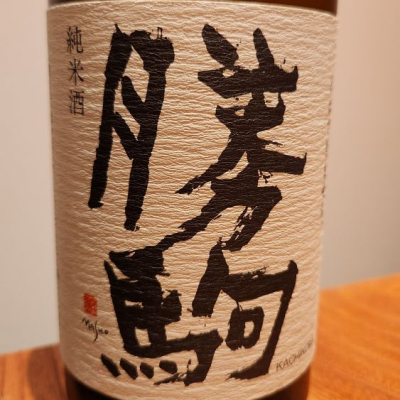 純米酒
勝駒
masuo
KACHIKOMA